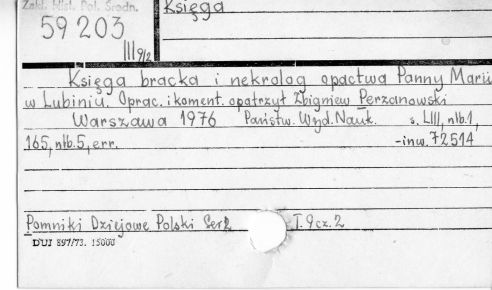 Zakł. Hist. Pol. Średn.
Księga
59 203
III 9/2
Księga bracka i nekrolog opactwa Panny Marii
w Lubiniu. Oprac. i koment. opatrzył Zbigniew Perzanowski
Warszawa 1976 Państw. Wyd. Nauk. s. LIII, nlb.1,
165, nlb. 5, err. -inw. 72514
Pomniki Dziejowe Polski Ser 2 T. 9 cz. 2
DUJ 897/73. 15000